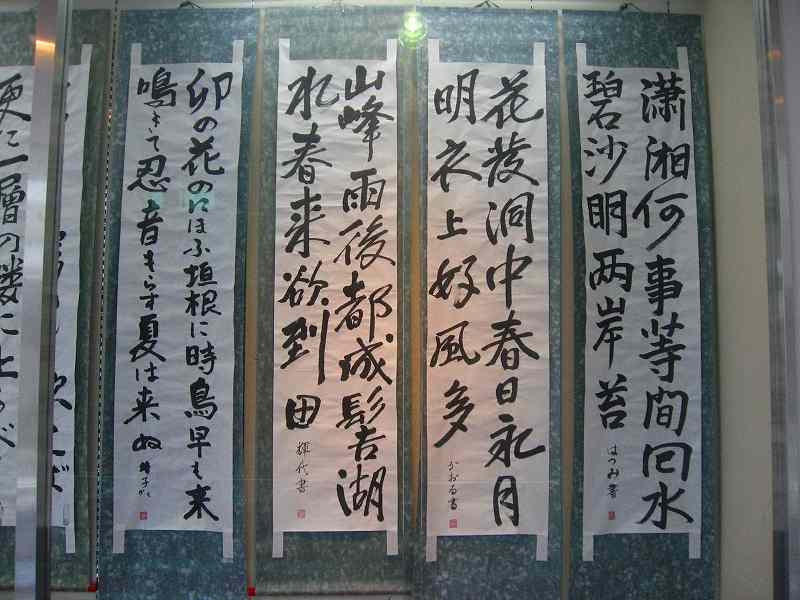 瀟湘何事等間回水
碧沙明両岸苔
はつみ書
花發洞中春日永月
明衣上好風多
かおる書
山峰雨後都成髻湖
水春来欲到田
輝代書
卯の花のにほふ垣根に時鳥早も来
鳴きて忍音もらす夏は来ぬ
更に一層の楼に上るべ